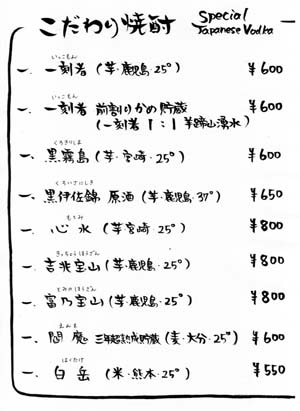 こだわり焼酎 Special Japanese Vodka
いっこもん
一、一刻者（芋・鹿児島・25°） ¥600
いっこもん
一、一刻者 前割りかめ貯蔵 ¥600
（一刻者 1：1 羊蹄山湧水）
くろきりしま
一、黒霧島（芋・宮崎・25°） ¥600
くろいさにしき
一、黒伊佐錦 原酒（芋・鹿児島・37°） ¥650
もとみ
一、心水（芋・宮崎・25°） ¥800
きっちょうほうざん
一、吉兆宝山（芋・鹿児島・25°） ¥800
とみのほうざん
一、富乃宝山（芋・鹿児島・25°） ¥800
えんま
一、閻魔 三年超熟成貯蔵（麦・大分・25°） ¥600
はくたけ
一、白岳（米・熊本・25°） ¥550